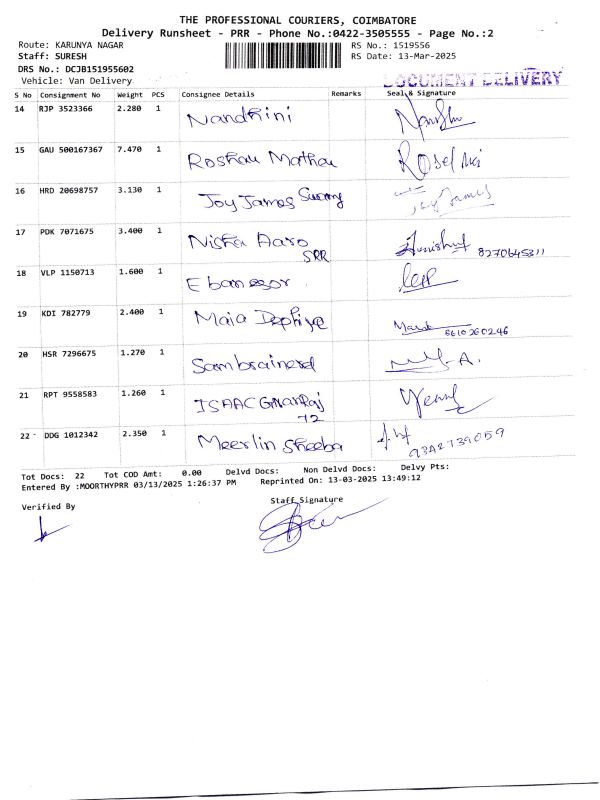 THE PROFESSIONAL COURIERS, COIMBATORE
Delivery Runsheet - PRR - Phone No.:0422-3505555 - Page No.:2
Route: KARUNYA NAGAR RS No.: 1519556
Staff: SURESH RS Date: 13-Mar-2025
DRS No.: DCJB151955602
Vehicle: Van Delivery DOCUMENT DELIVERY
S No Consignment No Weight PCS Consignee Details Remarks Seal & Signature
14 RJP 3523366 2.280 1 Nandhini
15 GAU 500167367 7.470 1 Roshan Mathau
16 HRD 20698757 3.130 1 Joy James Sunny Joy James
17 PDK 7071675 3.400 1 Nisha Aaro
SRR 8270645311
18 VLP 1150713 1.600 1 Ebanesor
19 KDI 782779 2.400 1 Maia Dephiye 8610260246
20 HSR 7296675 1.270 1 Sambrainerd
21 RPT 9558583 1.260 1 ISAAC GNANRaj
72
22 DDG 1012342 2.350 1 Meerlin Sheeba 9342739059
Tot Docs: 22 Tot COD Amt: 0.00 Delvd Docs: Non Delvd Docs: Delvy Pts:
Entered By :MOORTHYPRR 03/13/2025 1:26:37 PM Reprinted On: 13-03-2025 13:49:12
Staff Signature
Verified By